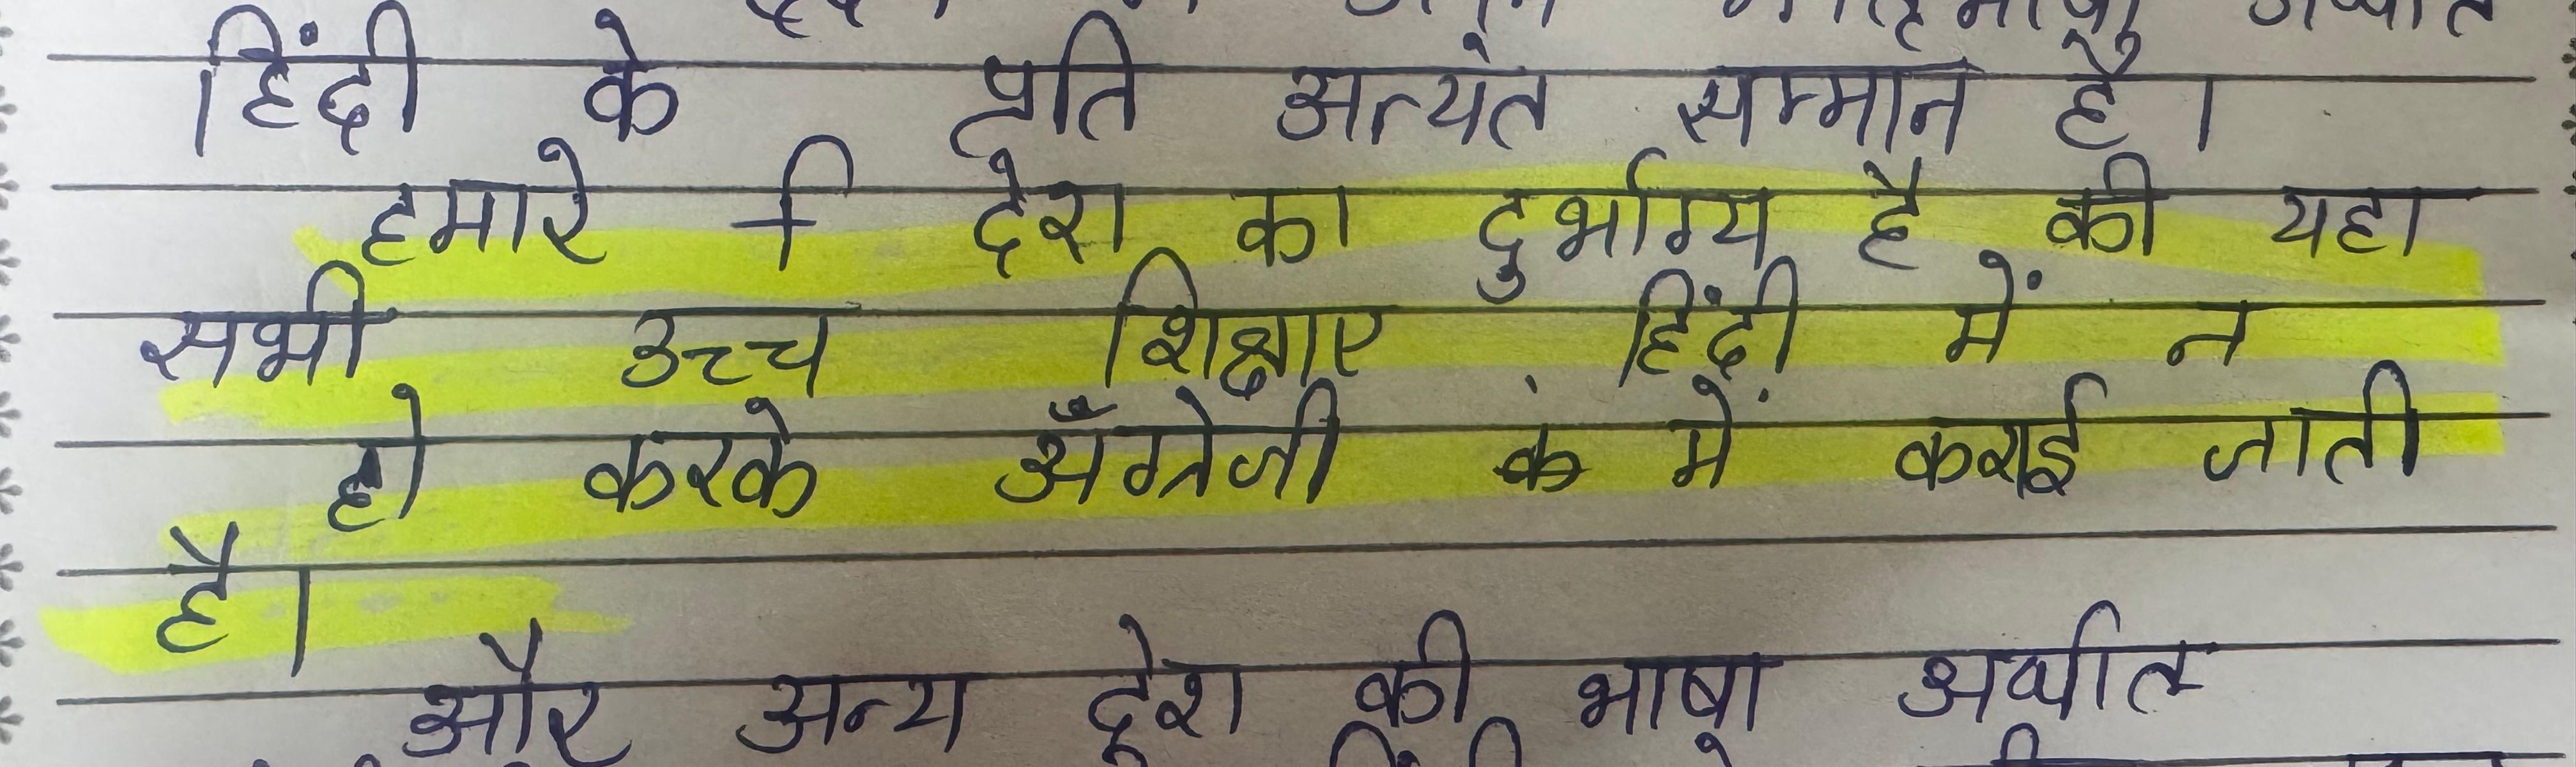 हिंदी के प्रति अत्यंत सम्मान है।
हमारे देश का दुर्भाग्य है की यहा
सभी उच्च शिक्षाए हिंदी में न
हो करके अँग्रेजी में कराई जाती
है।
और अन्य देश की भाषा अर्थात